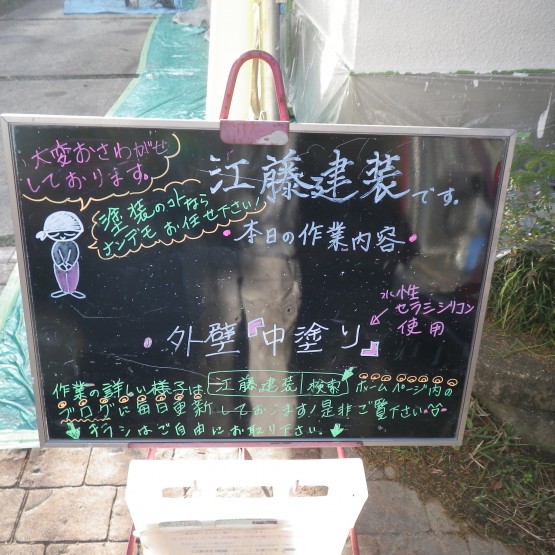 大変おさわがせ
しております。
江藤建装です。
塗装のコトなら
ナンデモお任せ下さい!
・本日の作業内容・
水性
セラミシリコン
使用
・外壁『中塗り』
作業の詳しい様子は 江藤建装 検索 ホームページ内の
ブログに毎日更新しております!是非ご覧下さい
チラシはご自由にお取り下さい。